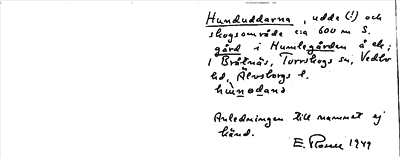 Hunduddarna, udde (!) och
skogsområde ca 600 m S.
gård i Humlegården å ek;
1 Bråtnäs, Torrskogs sn, Vedbo
hd, Älvsborgs l.
Anledningen till namnet ej
känd.
E. Rosell 1949